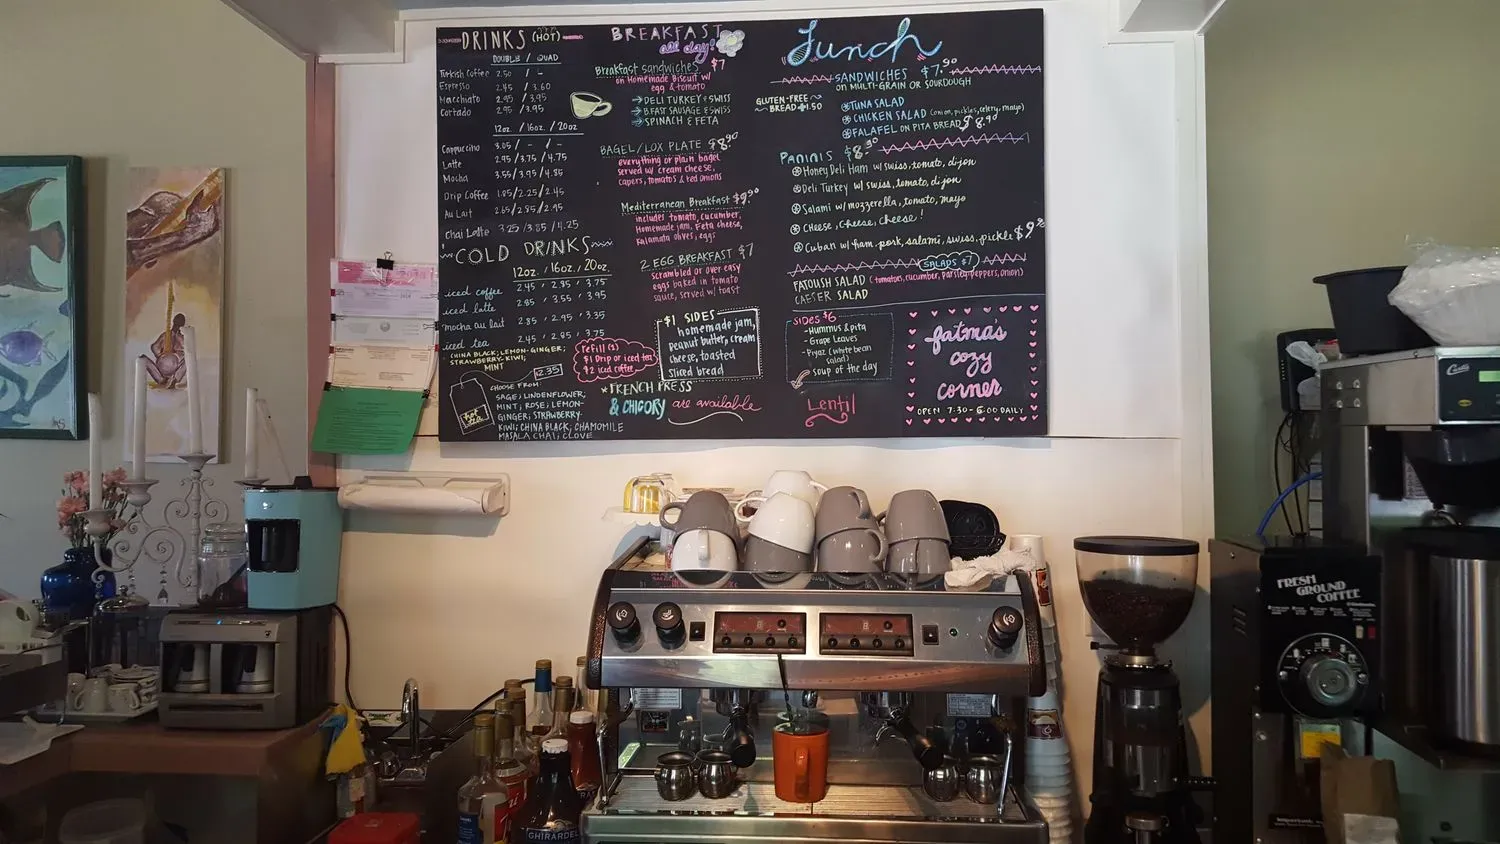 DRINKS (HOT)
DOUBLE / QUAD
Turkish Coffee 2.50 / -
Espresso 2.45 / 3.60
Macchiato 2.95 / 3.95
Cortado 2.95 / 3.95
12oz. / 16oz. / 20oz
Cappuccino 3.05 / - / -
Latte 2.95 / 3.75 / 4.75
Mocha 3.55 / 3.95 / 4.85
Drip Coffee 1.85 / 2.25 / 2.45
Au Lait 2.65 / 2.85 / 2.95
Chai Latte 3.25 / 3.85 / 4.25
COLD DRINKS
12oz. / 16oz. / 20oz.
iced coffee 2.45 , 2.95 , 3.75
iced latte 2.85 , 3.55 , 3.95
mocha au lait 2.85 , 2.95 , 3.35
iced tea 2.45 , 2.95 , 3.75
CHINA BLACK; LEMON-GINGER;
STRAWBERRY-KIWI;
MINT
refill(s)
$1 Drip or iced tea
$2 iced coffee
hot tea
$2.35
CHOOSE FROM:
SAGE; LINDENFLOWER,
MINT; ROSE; LEMON-
GINGER; STRAWBERRY-
KIWI; CHINA BLACK; CHAMOMILE
MASALA CHAI; CLOVE
BREAKFAST
all day!
Breakfast sandwiches $7
on Homemade Biscuit w/
egg & tomato
→ DELI TURKEY & SWISS
→ B.FAST SAUSAGE & SWISS
→ SPINACH & FETA
BAGEL/LOX PLATE $8.90
everything or plain bagel
served w/ cream cheese,
capers, tomatos & red onions
Mediterranean Breakfast $9.90
includes tomato, cucumber,
Homemade jam, Feta cheese,
Kalamata olives, eggs
2 EGG BREAKFAST $7
scrambled or over easy
eggs baked in tomato
sauce, served w/ toast
$1 SIDES
homemade jam,
Peanut butter, cream
cheese, toasted
sliced bread
* FRENCH PRESS
& CHICORY are available
Lunch
SANDWICHES $7.90
ON MULTI-GRAIN OR SOURDOUGH
GLUTEN-FREE
BREAD + $1.50
TUNA SALAD
CHICKEN SALAD (onion, pickles, celery, mayo)
FALAFEL ON PITA BREAD $8.90
PANINIS $8.90
Honey Deli Ham w/ swiss, tomato, dijon
Deli Turkey w/ swiss, tomato, dijon
Salami w/ mozzerella, tomato, mayo
CHeese, Cheese, Cheese!
Cuban w/ ham, pork, salami, swiss, pickle $9.90
SALADS $7
FATOUSH SALAD (tomatoes, cucumber, parsley, peppers, onion)
CAESER SALAD
SIDES $6
- Hummus & pita
- Grape Leaves
- Piyaz (white bean
salad)
- soup of the day
Lentil
fatma's
cozy
corner
OPEN 7:30 - 6:00 DAILY
Curtis
FRESH
GROUND
COFFEE
GHIRARDELLI